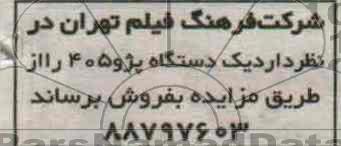 شرکت فرهنگ فیلم تهران در
نظر دارد یک دستگاه پژو ۴۰۵ را از
طریق مزایده بفروش برساند
۸۸۷۹۷۶۰۳
ParsNamadData